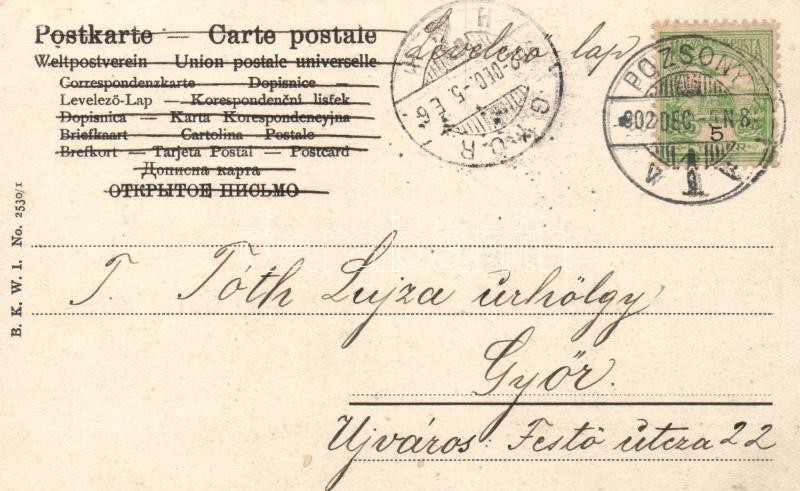 Postkarte — Carte postale
Weltpostverein — Union postale universelle
Correspondenzkarte — Dopisnice
Levelező-Lap — Korespondenční lístek
Dopisnica — Karta Korespondencyjna
Briefkaart — Cartolina Postale
Brefkort — Tarjeta Postal — Postcard
Дописна карта
ОТКРЫТОЕ ПИСЬМО
Levelező lap
GYŐR
902 DEC. 5
POZSONY
902 DEC
5
B. K. W. I. No. 2530/1
T. Tóth Lujza úrhölgy
Győr.
Ujváros Festő utcza 22